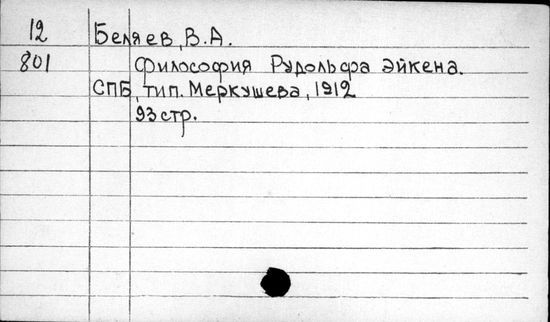 12 Беляев, В.А.
801 Философия Рудольфа Эйкена.
СПБ, тип. Меркушева, 1912
93 стр.